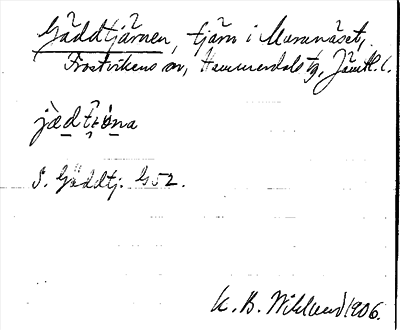 Gäddtjärnen, tjärn i Muranäset,
Frostvikens sn, Hammerdals tg, Jämtl. l.
S. Gäddtj. G 52.
K. B. Wiklund 1906.